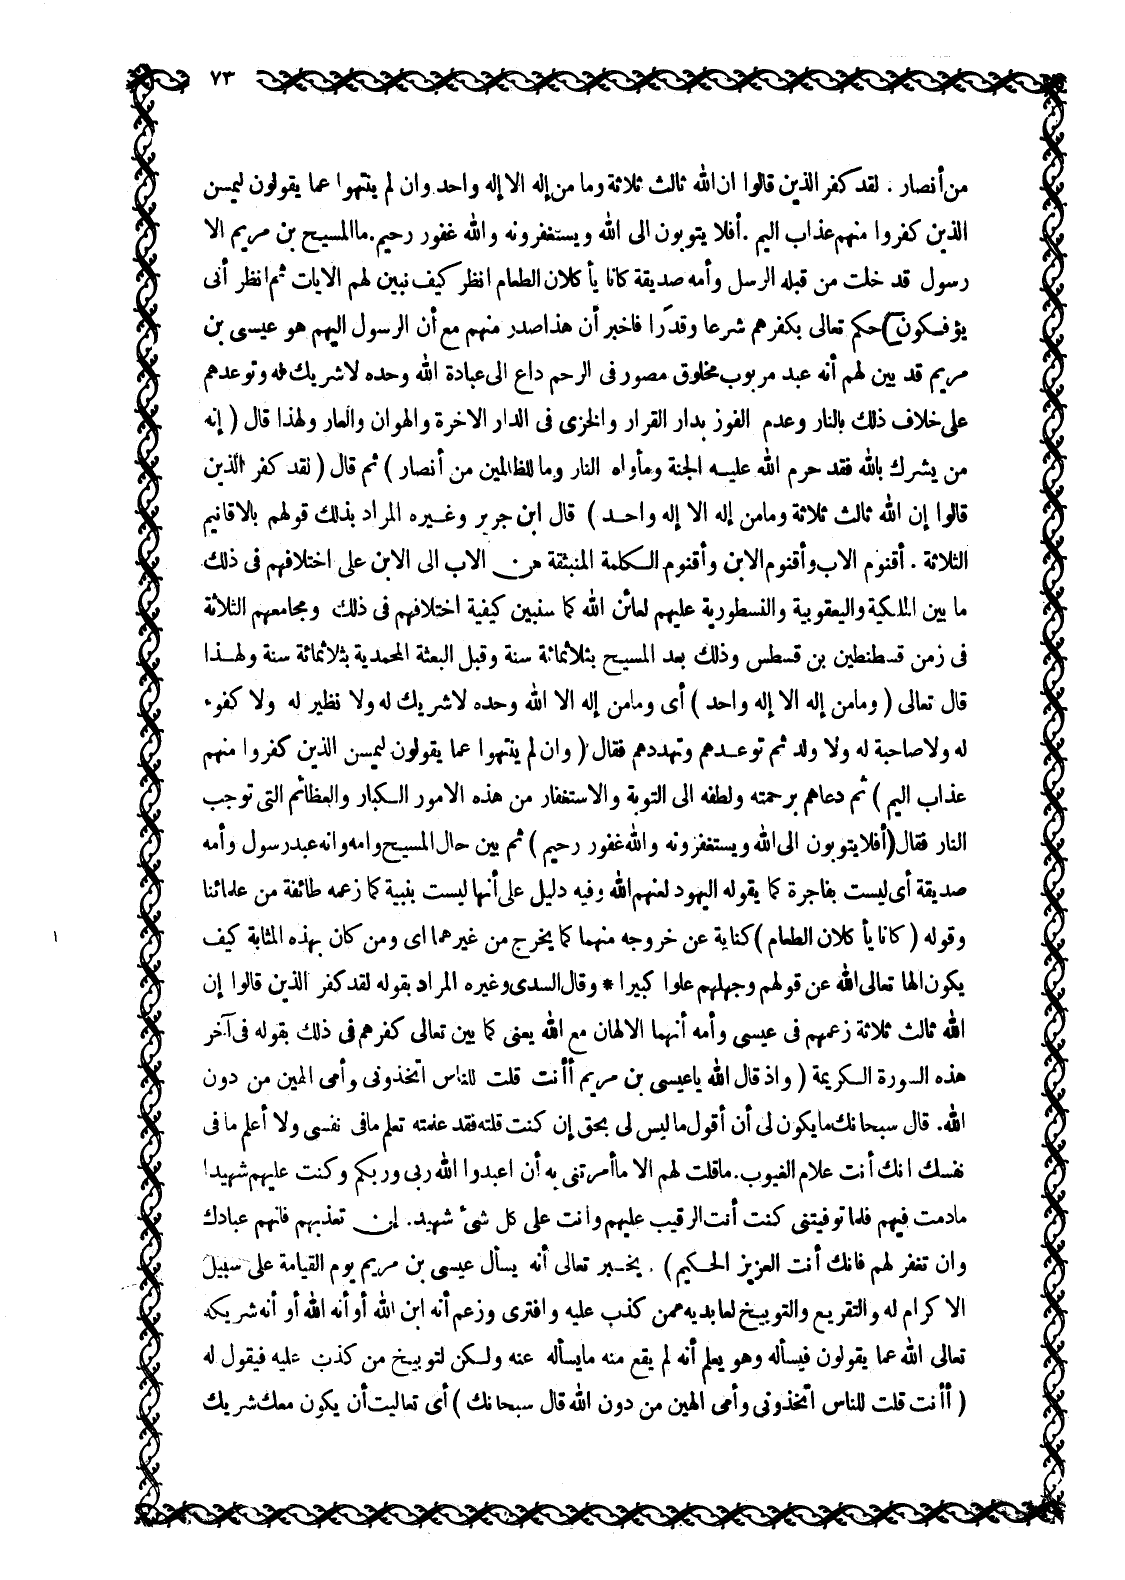 ٧٣
من أنصار . لقد كفر الذين قالوا ان الله ثالث ثلاثة وما من إله الا إله واحد وان لم ينتهوا عما يقولون ليمسن
الذين كفروا منهم عذاب اليم . أفلا يتوبون الى الله ويستغفرونه والله غفور رحيم . ما المسيح بن مريم الا
رسول قد خلت من قبله الرسل وأمه صديقة كانا يأكلان الطعام انظر كيف نبين لهم الايات ثم انظر أنى
يؤفكون ) حكم تعالى بكفرهم شرعا وقدرا فاخبر أن هذا صدر منهم مع أن الرسول اليهم هو عيسى بن
مريم قد بين لهم أنه عبد مربوب مخلوق مصور فى الرحم داع الى عبادة الله وحده لاشريك له وتوعدهم
على خلاف ذلك بالنار وعدم الفوز بدار القرار والخزى فى الدار الاخرة والهوان والعار ولهذا قال ( إنه
من يشرك بالله فقد حرم الله عليه الجنة ومأواه النار وما للظالمين من أنصار ) ثم قال ( لقد كفر الذين
قالوا إن الله ثالث ثلاثة ومامن إله الا إله واحد ) قال ابن جرير وغيره المراد بذلك قولهم بالاقانيم
الثلاثة . أقنوم الاب وأقنوم الابن وأقنوم الكلمة المنبثقة من الاب الى الابن على اختلافهم فى ذلك
ما بين الملكية واليعقوبية والنسطورية عليهم لعائن الله كما سنبين كيفية اختلافهم فى ذلك ومجامعهم الثلاثة
فى زمن قسطنطين بن قسطس وذلك بعد المسيح بثلاثمائة سنة وقبل البعثة المحمدية بثلاثمائة سنة ولهذا
قال تعالى ( ومامن إله الا إله واحد ) أى ومامن إله الا الله وحده لاشريك له ولا نظير له ولا كفوء
له ولاصاحبة له ولا ولد ثم توعدهم وتهددهم فقال ( وان لم ينتهوا عما يقولون ليمسن الذين كفروا منهم
عذاب اليم ) ثم دعاهم برحمته ولطفه الى التوبة والاستغفار من هذه الامور الكبار والعظائم التى توجب
النار فقال (أفلايتوبون الى الله ويستغفرونه والله غفور رحيم ) ثم بين حال المسيح وامه وانه عبد رسول وأمه
صديقة أى ليست بفاجرة كما يقوله اليهود لعنهم الله وفيه دليل على أنها ليست بنبية كما زعمه طائفة من علمائنا
وقوله ( كانا يأكلان الطعام ) كناية عن خروجه منهما كما يخرج من غيرهما اى ومن كان بهذه المثابة كيف
يكون الها تعالى الله عن قولهم وجهلهم علوا كبيرا * وقال السدى وغيره المراد بقوله لقد كفر الذين قالوا إن
الله ثالث ثلاثة زعمهم فى عيسى وأمه أنهما الالهان مع الله يعنى كما بين تعالى كفرهم فى ذلك بقوله فى آخر
هذه السورة الكريمة ( واذ قال الله ياعيسى بن مريم أأنت قلت للناس اتخذونى وأمى الهين من دون
الله . قال سبحانك مايكون لى أن أقول ماليس لى بحق إن كنت قلته فقد علمته تعلم مافى نفسى ولا أعلم مافى
نفسك انك أنت علام الغيوب . ماقلت لهم الا ماأمرتنى به أن اعبدوا الله ربى وربكم وكنت عليهم شهيدا
مادمت فيهم فلما توفيتنى كنت أنت الرقيب عليهم وانت على كل شئ شهيد . إن تعذبهم فانهم عبادك
وان تغفر لهم فانك أنت العزيز الحكيم ) . يخبر تعالى أنه يسأل عيسى بن مريم يوم القيامة على سبيل
الاكرام له والتقريع والتوبيخ لعابديه ممن كذب عليه وافترى وزعم أنه ابن الله أو أنه الله أو أنه شريكه
تعالى الله عما يقولون فيسأله وهو يعلم أنه لم يقع منه مايسأله عنه ولكن لتوبيخ من كذب عليه فيقول له
( أأنت قلت للناس اتخذونى وأمى الهين من دون الله قال سبحانك ) أى تعاليت أن يكون معك شريك
١